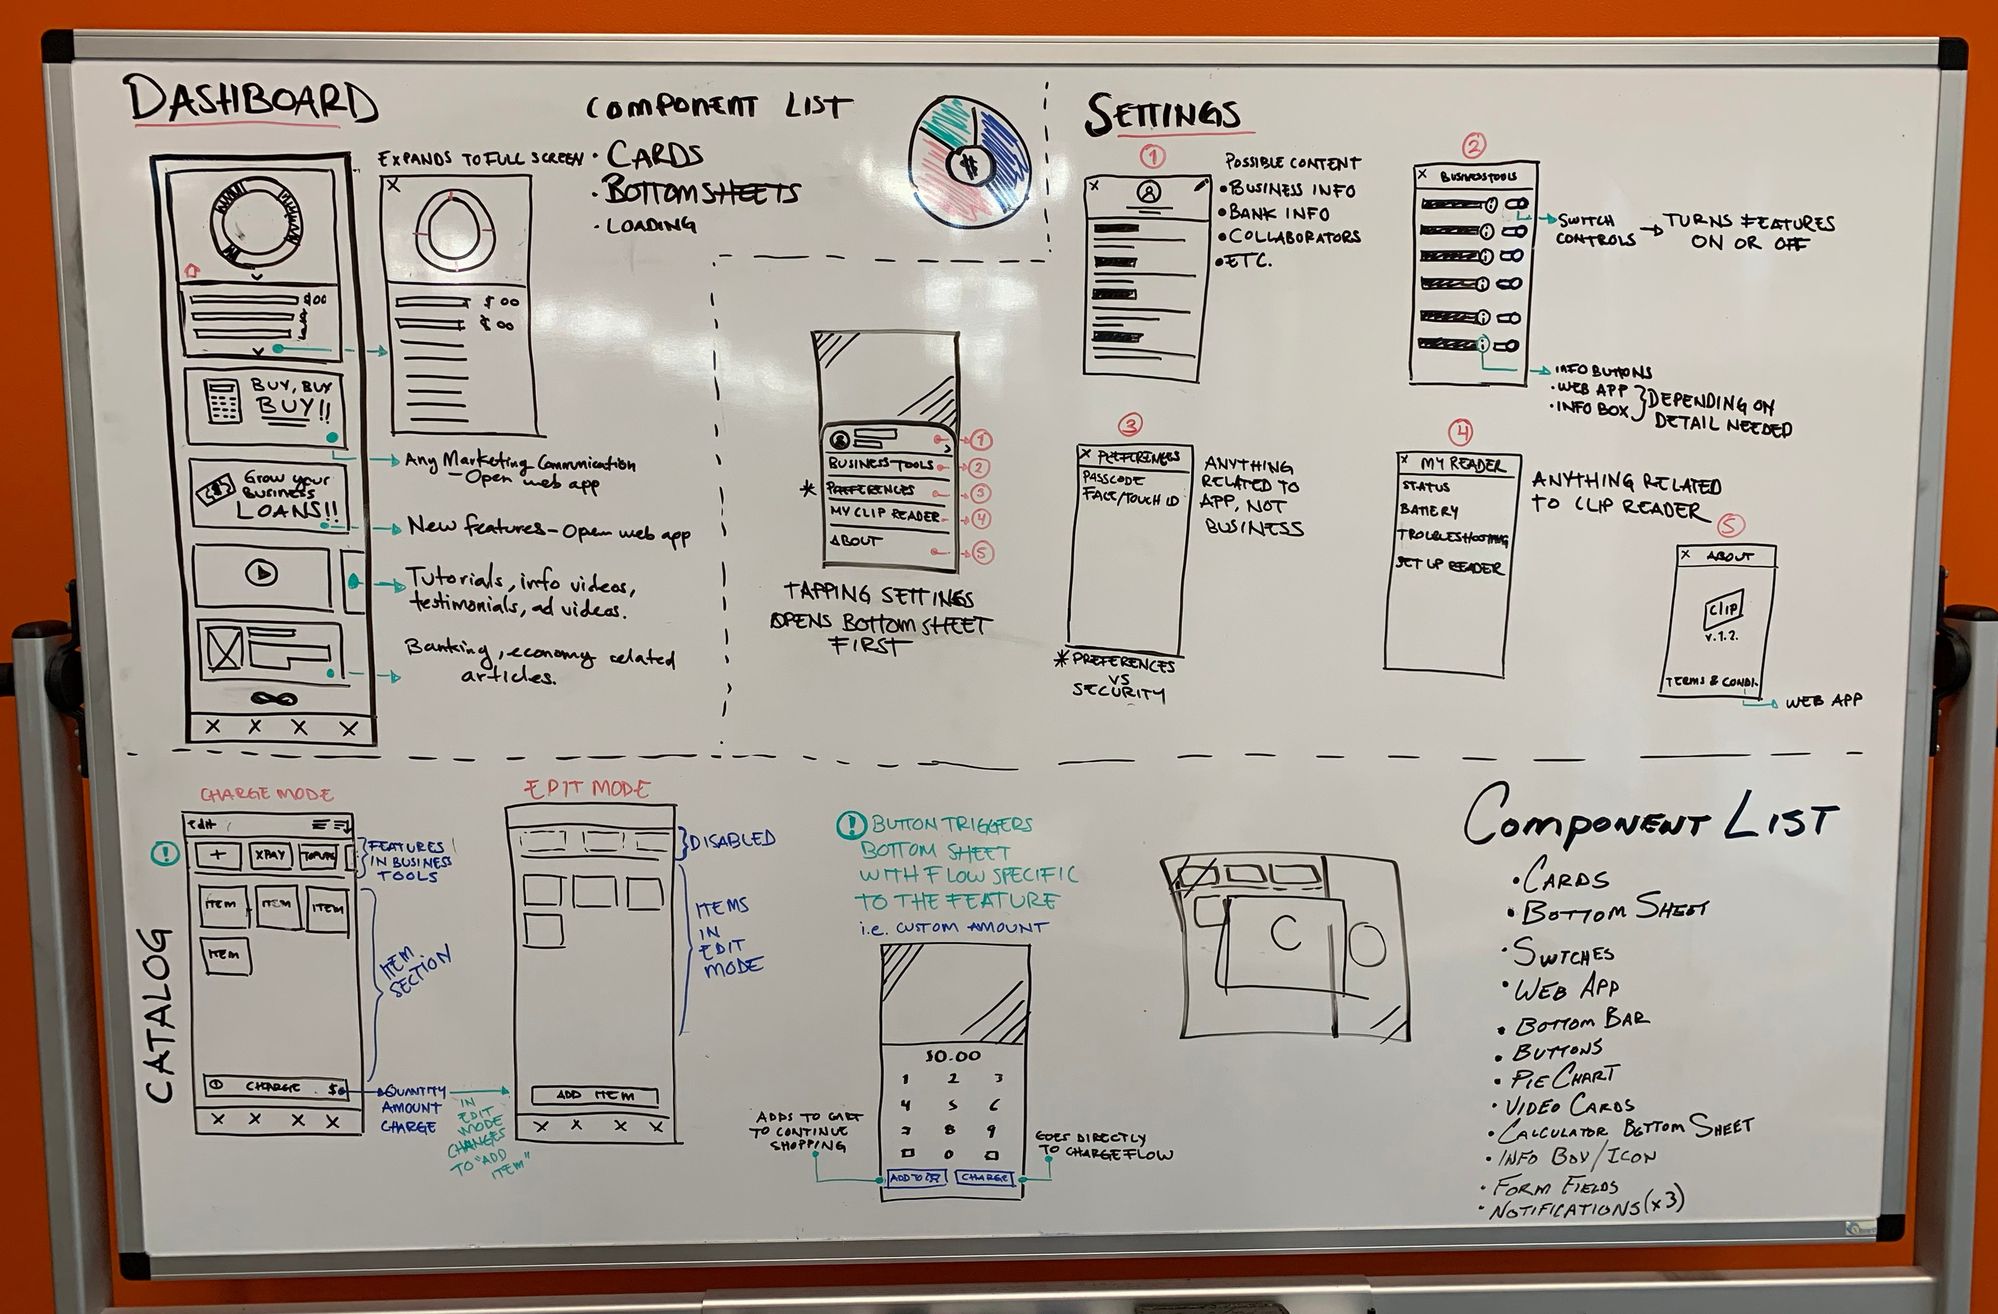 DASHBOARD
EXPANDS TO FULL SCREEN
X
$00
$00
$00
BUY, BUY
BUY!!
Grow your
Business
LOANS!!
Any Marketing Communication
- Open web app
New features - Open web app
Tutorials, info videos,
testimonials, ad videos.
Banking, economy related
articles.
X X X X
COMPONENT LIST
• CARDS
• BOTTOMSHEETS
• LOADING
$
BUSINESS TOOLS
PREFERENCES
MY CLIP READER
ABOUT
1
2
3
4
5
*
TAPPING SETTINGS
OPENS BOTTOM SHEET
FIRST
SETTINGS
1
X
POSSIBLE CONTENT
• BUSINESS INFO
• BANK INFO
• COLLABORATORS
• ETC.
2
X BUSINESS TOOLS
SWITCH
CONTROLS
TURNS FEATURES
ON OR OFF
INFO BUTTONS
• WEB APP
• INFO BOX
DEPENDING ON
DETAIL NEEDED
3
X PREFERENCES
PASSCODE
FACE/TOUCH ID
ANYTHING
RELATED TO
APP, NOT
BUSINESS
* PREFERENCES
VS
SECURITY
4
X MY READER
STATUS
BATTERY
TROUBLESHOOTING
SET UP READER
ANYTHING RELATED
TO CLIP READER
5
X ABOUT
clip
v.1.2.
TERMS & CONDI.
WEB APP
CATALOG
CHARGE MODE
edit
!
+ XPAY TOPUPS
FEATURES
IN BUSINESS
TOOLS
ITEM ITEM ITEM
ITEM
ITEM
SECTION
CHARGE $0
X X X X
QUANTITY
AMOUNT
CHARGE
IN
EDIT
MODE
CHANGES
TO "ADD
ITEM"
EDIT MODE
DISABLED
ITEMS
IN
EDIT
MODE
ADD ITEM
X X X X
! BUTTON TRIGGERS
BOTTOM SHEET
WITH FLOW SPECIFIC
TO THE FEATURE
i.e. CUSTOM AMOUNT
$0.00
1 2 3
4 5 6
7 8 9
0
ADD TO
CHARGE
ADDS TO CART
TO CONTINUE
SHOPPING
GOES DIRECTLY
TO CHARGE FLOW
C
COMPONENT LIST
• CARDS
• BOTTOM SHEET
• SWITCHES
• WEB APP
• BOTTOM BAR
• BUTTONS
• PIE CHART
• VIDEO CARDS
• CALCULATOR BOTTOM SHEET
• INFO BOX/ICON
• FORM FIELDS
• NOTIFICATIONS (x3)